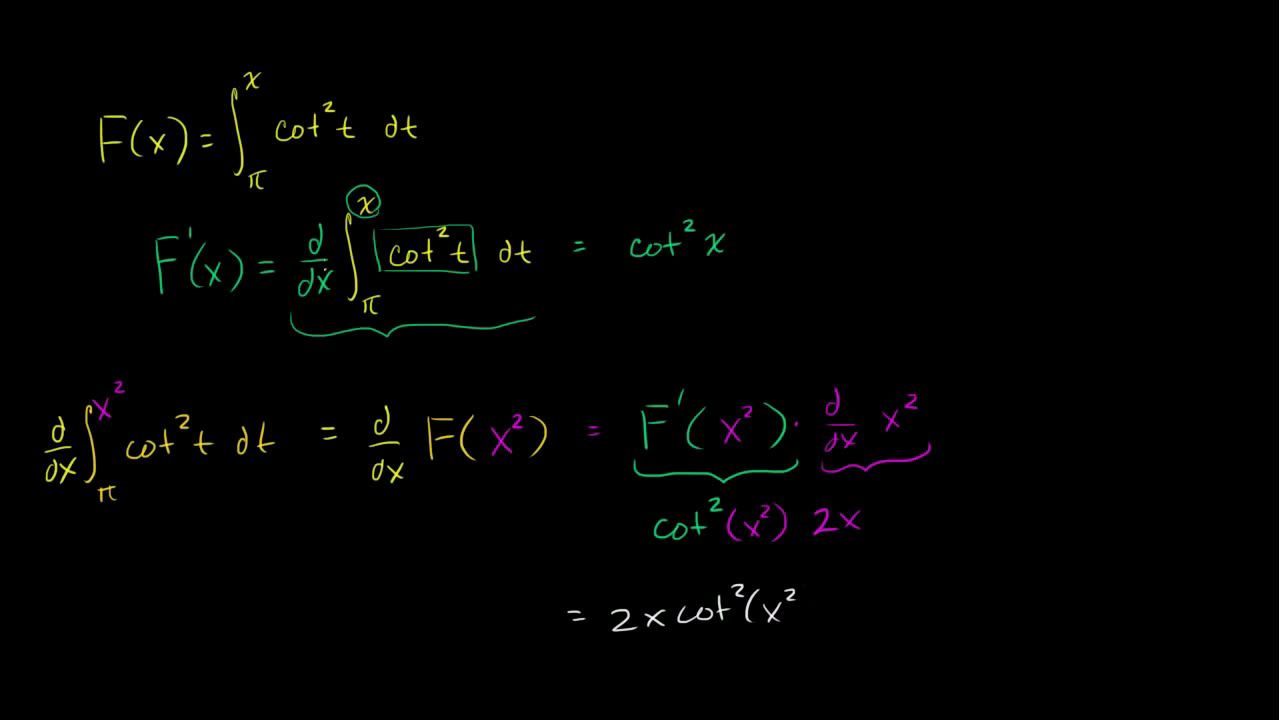 F(x) = ∫_π^x cot² t dt
F'(x) = d/dx ∫_π^x cot² t dt = cot² x
d/dx ∫_π^x² cot² t dt = d/dx F(x²) = F'(x²) · d/dx x²
cot²(x²) 2x
= 2x cot²(x²